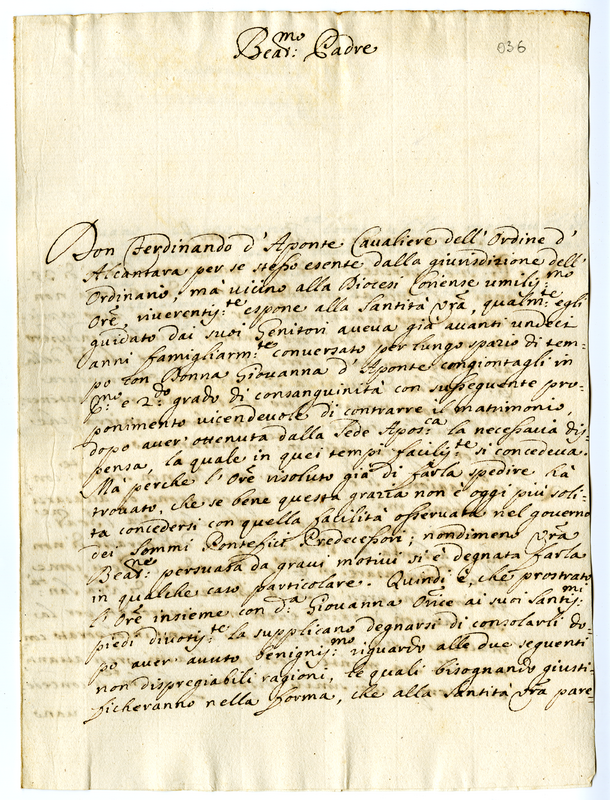 Beat.mo Padre
036
Don Ferdinando d'Aponte Cavaliere dell'Ordine d'
Alcantara per se stesso esente dalla giurisdizione dell'
Ordinario, mà vicino alla Diocesi umiliss:mo
Ore, riverentiss:te espone alla Santità Vra, qualm:te egli
guidato dai suoi Genitori aveva già avanti undeci
anni famigliarm:te conversato per lungo spazio di tem-
po con Donna Giovanna d'Aponte congiontagli in
p:mo e 2:do grado di consanguinità con susseguente pro-
ponimento vicendevole di contrarre il matrimonio,
dopo aver ottenuta dalla Sede Apos:ca la necessaria dis-
pensa, la quale in quei tempi faciliss:te si concedeva.
Mà perche l'Ore risoluto già di farla spedire hà
trovato, che se bene questa grazia non è oggi più soli-
ta concedersi con quella facilità osservata nel governo
dei Sommi Pontefici Predecessori; nondimeno Vra
Beat:ne persuasa da gravi motivi si è degnata farla
in qualche caso particolare. Quindi è, che prostrato
l'Ore insieme con d:a Giovanna Orice ai suoi Santiss:mi
piedi divotiss:te la supplicano degnarsi di consolarli do-
po aver avuto benigniss:mo riguardo alle due seguenti
non dispregiabili ragioni, le quali bisognando giusti-
ficheranno nella forma, che alla Santità Vra pare-